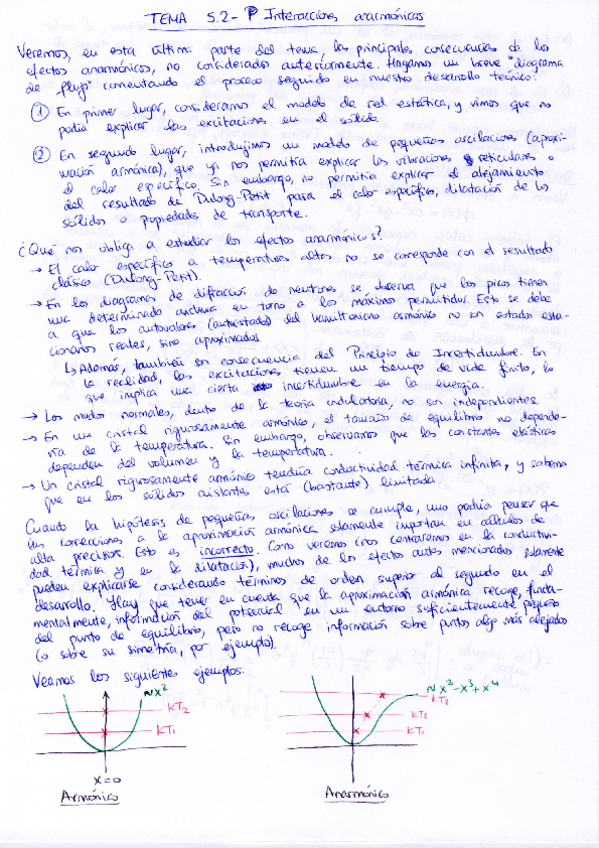 TEMA 5.2- Interacciones anarmónicas
Veremos, en esta última parte del tema, las principales consecuencias de los
efectos anarmónicos, no considerados anteriormente. Hagamos un breve "diagrama
de flujo" comentando el proceso seguido en nuestro desarrollo teórico:
① En primer lugar, consideramos el modelo de red estática, y vimos que no
podía explicar las excitaciones en el sólido.
② En segundo lugar, introdujimos un modelo de pequeñas oscilaciones (aproxi-
mación armónica), que ya nos permitía explicar las vibraciones reticulares o
el calor específico. Sin embargo, no permitía explicar el alejamiento
del resultado de Dulong-Petit para el calor específico, dilatación de los
sólidos o propiedades de transporte.
¿Qué nos obliga a estudiar los efectos anarmónicos?
→ El calor específico a temperaturas altas no se corresponde con el resultado
clásico (Dulong-Petit).
→ En los diagramas de difracción de neutrones se observa que los picos tienen
una determinada anchura en torno a los máximos permitidos. Esto se debe
a que los autovalores (autoestados) del hamiltoniano armónico no son estados esta-
cionarios reales, sino aproximados.
↳ Además, también son consecuencia del Principio de Incertidumbre. En
la realidad, las excitaciones tienen un tiempo de vida finito, lo
que implica una cierta incertidumbre en la energía.
→ Los modos normales, dentro de la teoría ondulatoria, no son independientes.
→ En un cristal rigurosamente armónico, el tamaño de equilibrio no depende-
ría de la temperatura. Sin embargo, observamos que las constantes elásticas
dependen del volumen y la temperatura.
→ Un cristal rigurosamente armónico tendría conductividad térmica infinita, y sabemos
que en los sólidos aislantes está (bastante) limitada.
Cuando la hipótesis de pequeñas oscilaciones se cumple, uno podría pensar que
las correcciones a la aproximación armónica solamente importan en cálculos de
alta precisión. Esto es incorrecto. Como veremos (nos centraremos en la conductivi-
dad térmica y en la dilatación), muchos de los efectos antes mencionados solamente
pueden explicarse considerando términos de orden superior al segundo en el
desarrollo. Hay que tener en cuenta que la aproximación armónica recoge, funda-
mentalmente, información del potencial en un entorno suficientemente pequeño
del punto de equilibrio, pero no recoge información sobre puntos algo más alejados
(o sobre su simetría, por ejemplo).
Veamos los siguientes ejemplos:
~x²
KT₂
KT₁
x=0
Armónico
~x²-x³+x⁴
KT₂
KT₂
KT₁
Anarmónico